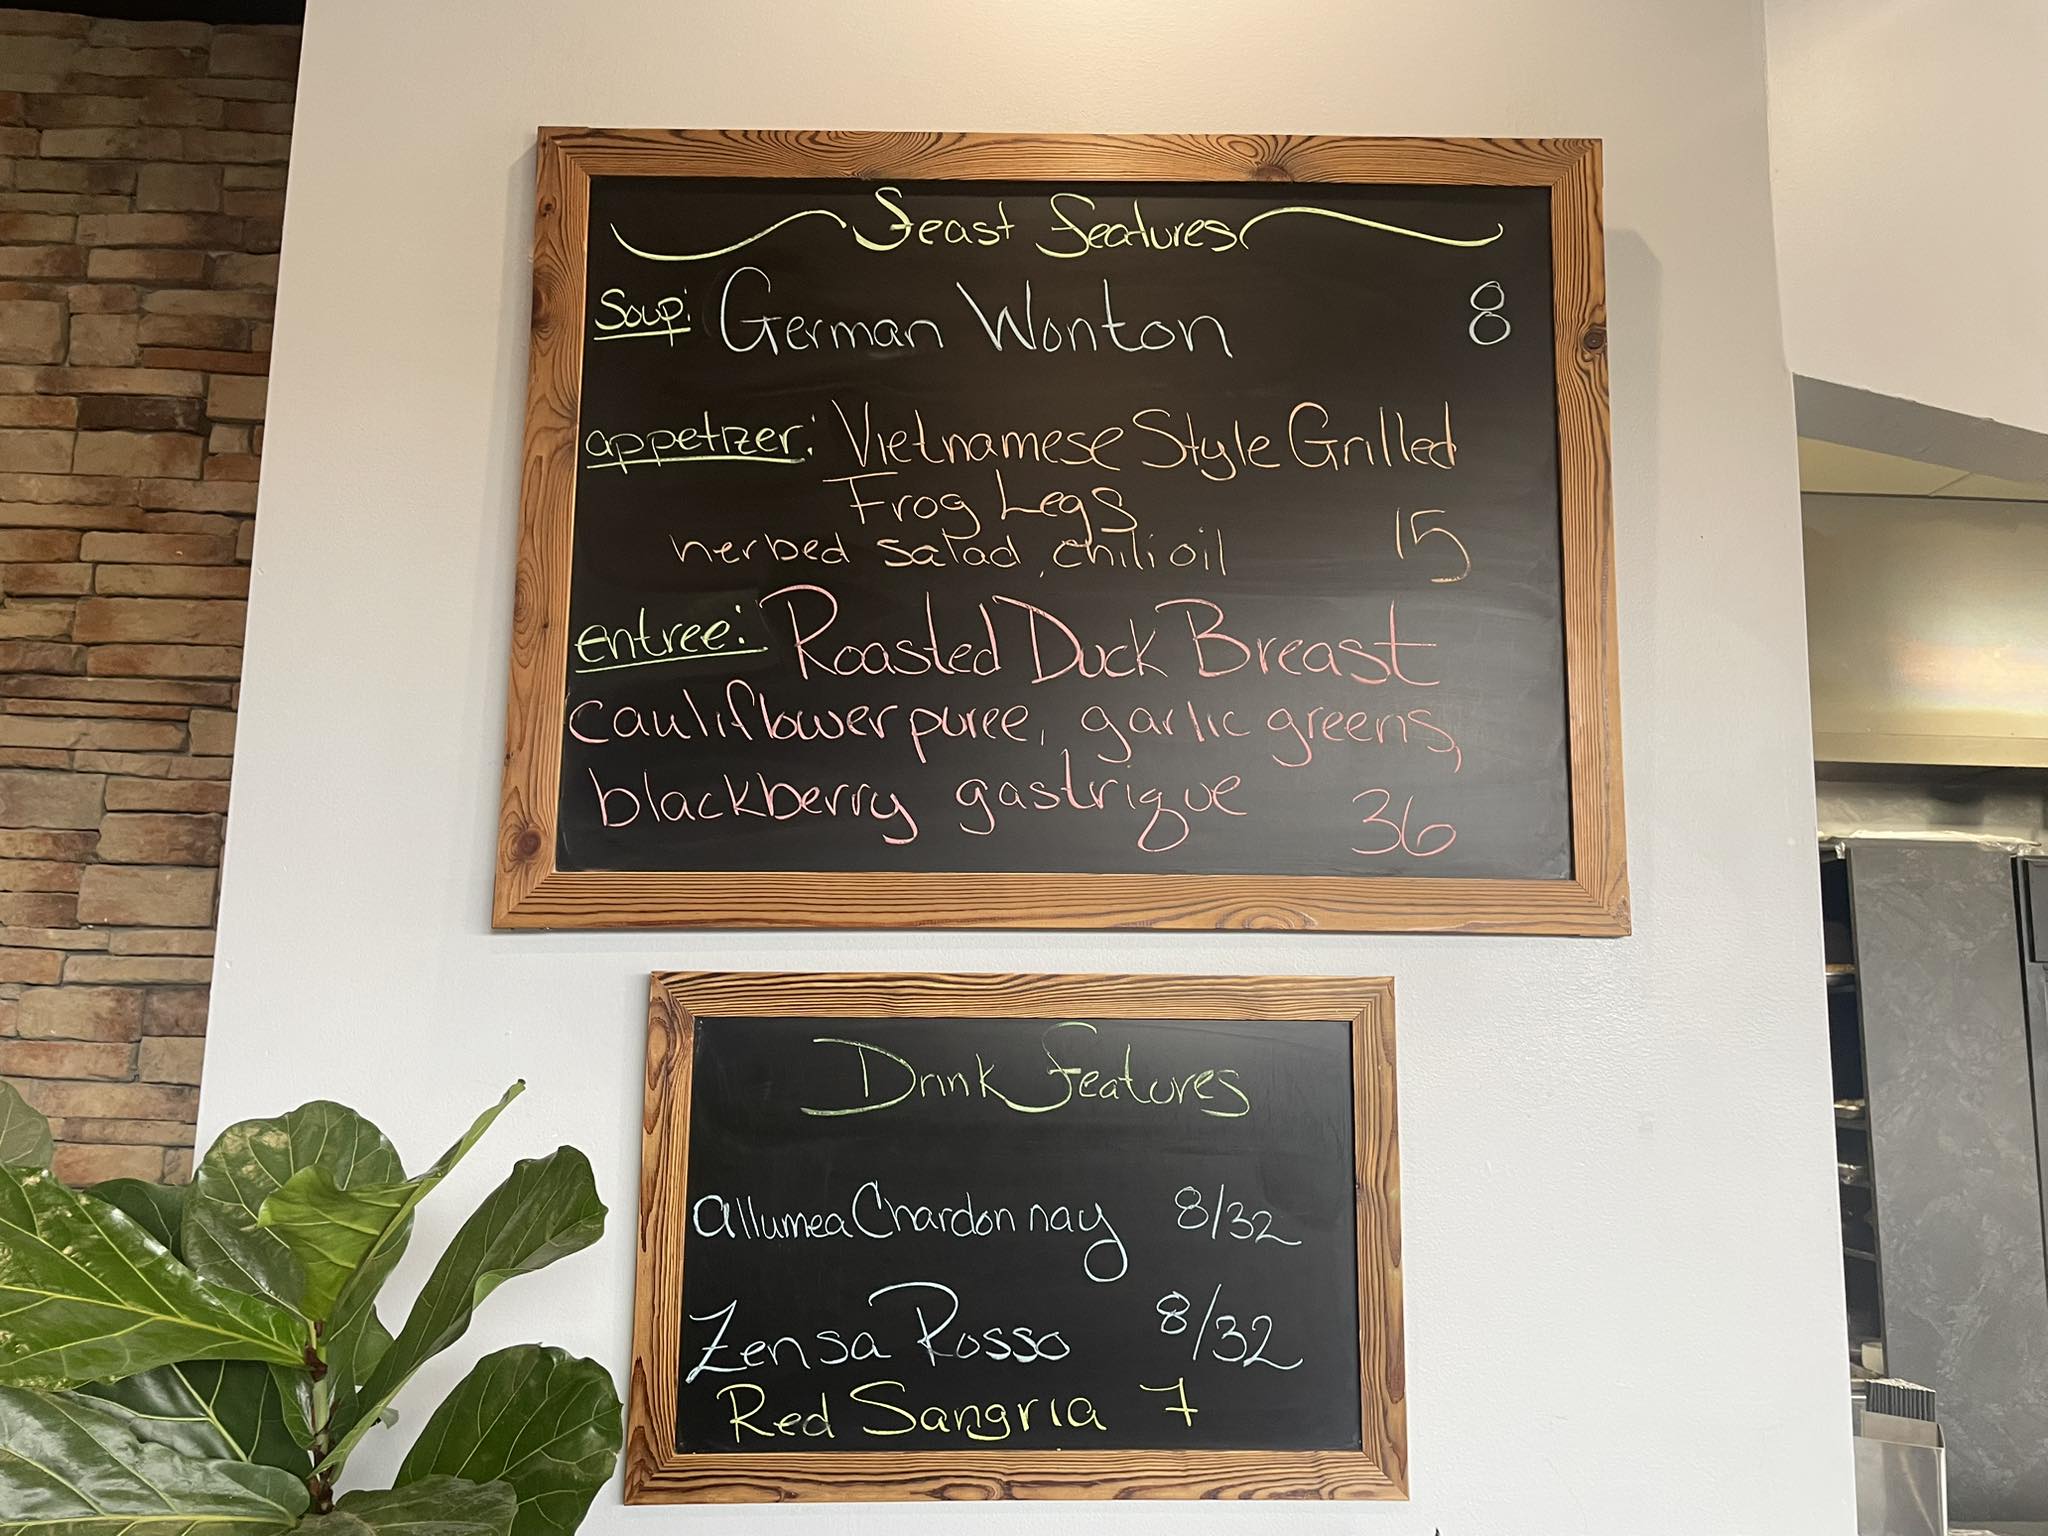 Feast Features
Soup: German Wonton 8
appetizer: Vietnamese Style Grilled
Frog Legs
herbed salad, chili oil 15
entree: Roasted Duck Breast
cauliflower puree, garlic greens,
blackberry gastrique 36
Drink Features
allumea Chardonnay 8/32
Zensa Rosso 8/32
Red Sangria 7